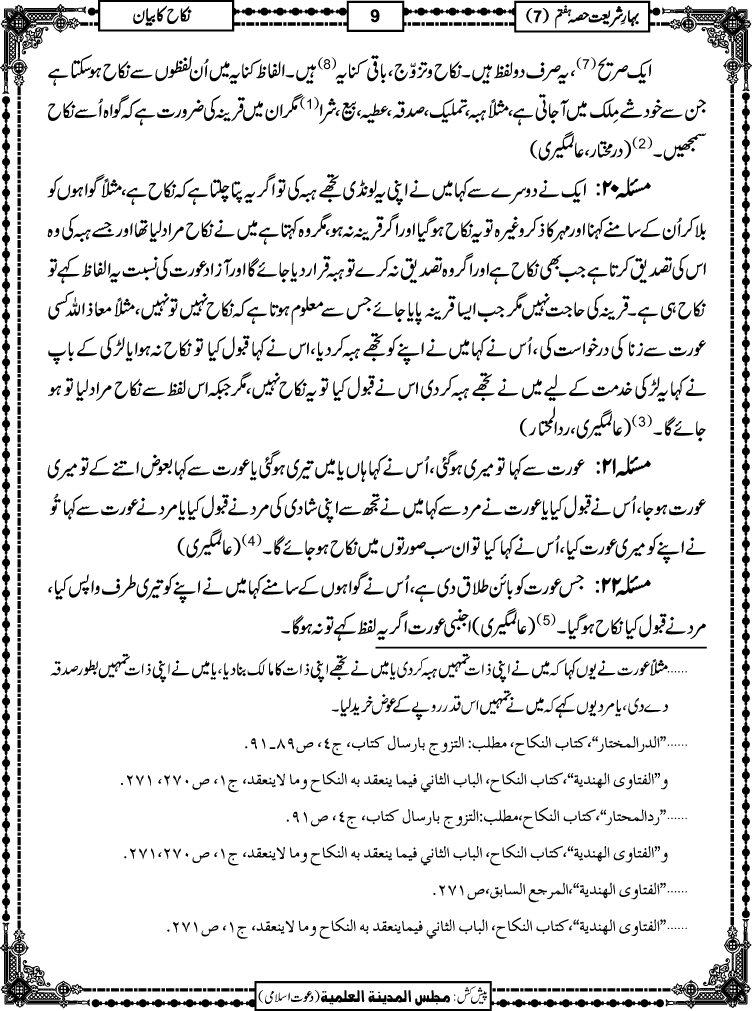 بہارِ شریعت حصہ ہفتم (7)
9
نکاح کا بیان
ایک صریح(7)، یہ صرف دو لفظ ہیں۔ نکاح و تزوّج، باقی کنایہ(8) ہیں۔ الفاظ کنایہ میں اُن لفظوں سے نکاح ہوسکتا ہے
جن سے خود شے مِلک میں آجاتی ہے، مثلاً ہبہ، تملیک، صدقہ، عطیہ، بیع، شرا(1) مگر ان میں قرینہ کی ضرورت ہے کہ گواہ اُسے نکاح
سمجھیں۔(2) (درمختار، عالمگیری)
مسئلہ ۲۰: ایک نے دوسرے سے کہا میں نے اپنی یہ لونڈی تجھے ہبہ کی تو اگر یہ پتا چلتا ہے کہ نکاح ہے، مثلاً گواہوں کو
بلا کر اُن کے سامنے کہنا اور مہر کا ذکر وغیرہ تو یہ نکاح ہوگیا اور اگر قرینہ نہ ہو، مگر وہ کہتا ہے میں نے نکاح مراد لیا تھا اور جسے ہبہ کی وہ
اس کی تصدیق کرتا ہے جب بھی نکاح ہے اور اگر وہ تصدیق نہ کرے تو ہبہ قرار دیا جائے گا اور آزاد عورت کی نسبت یہ الفاظ کہے تو
نکاح ہی ہے۔ قرینہ کی حاجت نہیں مگر جب ایسا قرینہ پایا جائے جس سے معلوم ہوتا ہے کہ نکاح نہیں تو نہیں، مثلاً معاذ اللہ کسی
عورت سے زنا کی درخواست کی، اُس نے کہا میں نے اپنے کو تجھے ہبہ کردیا، اس نے کہا قبول کیا تو نکاح نہ ہوا یا لڑکی کے باپ
نے کہا یہ لڑکی خدمت کے لیے میں نے تجھے ہبہ کردی اس نے قبول کیا تو یہ نکاح نہیں، مگر جبکہ اس لفظ سے نکاح مراد لیا تو ہو
جائے گا۔(3) (عالمگیری، ردالمحتار)
مسئلہ ۲۱: عورت سے کہا تو میری ہوگئی، اُس نے کہا ہاں یا میں تیری ہوگئی یا عورت سے کہا بعوض اتنے کے تو میری
عورت ہوجا، اُس نے قبول کیا یا عورت نے مرد سے کہا میں نے تجھ سے اپنی شادی کی مرد نے قبول کیا یا مرد نے عورت سے کہا تُو
نے اپنے کو میری عورت کیا، اُس نے کہا کیا تو ان سب صورتوں میں نکاح ہوجائے گا۔(4) (عالمگیری)
مسئلہ ۲۲: جس عورت کو بائن طلاق دی ہے، اُس نے گواہوں کے سامنے کہا میں نے اپنے کو تیری طرف واپس کیا،
مرد نے قبول کیا نکاح ہوگیا۔(5) (عالمگیری) اجنبی عورت اگر یہ لفظ کہے تو نہ ہوگا۔
......مثلاً عورت نے یوں کہا کہ میں نے اپنی ذات تمہیں ہبہ کردی یا میں نے تجھے اپنی ذات کا مالک بنادیا، یا میں نے اپنی ذات تمہیں بطور صدقہ
دے دی، یا مرد یوں کہے کہ میں نے تمہیں اس قدر روپے کے عوض خرید لیا۔
......”الدرالمختار“، کتاب النکاح، مطلب: التزوج بارسال کتاب، ج٤، ص٨٩ـ٩١.
و”الفتاوی الهندیة“، کتاب النکاح، الباب الثاني فیما ینعقد به النکاح وما لاینعقد، ج١، ص٢٧٠، ٢٧١.
......”ردالمحتار“، کتاب النکاح، مطلب:التزوج بارسال کتاب، ج٤، ص٩١.
و”الفتاوی الهندیة“، کتاب النکاح، الباب الثاني فیما ینعقد به النکاح وما لاینعقد، ج١، ص٢٧٠،٢٧١.
......”الفتاوی الهندیة“،المرجع السابق،ص٢٧١.
......”الفتاوی الهندیة“، کتاب النکاح، الباب الثاني فیماینعقد به النکاح وما لاینعقد، ج١، ص٢٧١.
پیش کش: مجلس المدینة العلمیة (دعوت اسلامی)